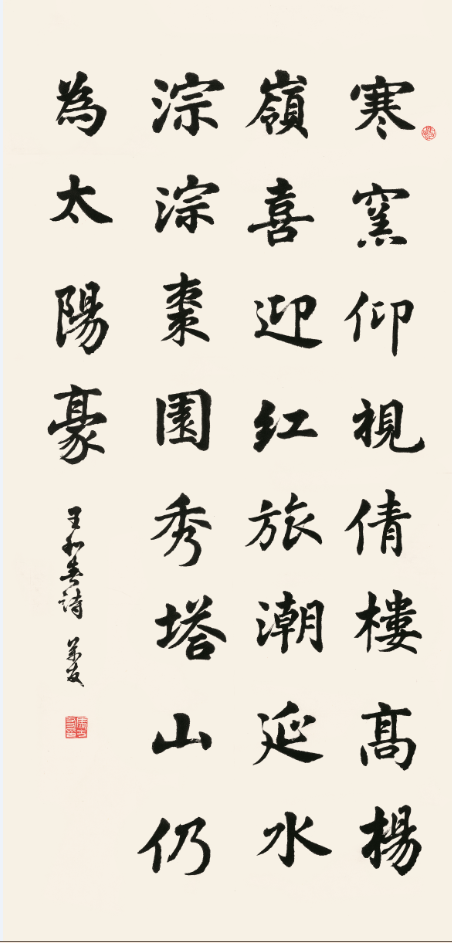 寒窯仰視倩樓高楊
嶺喜迎红旅潮延水
淙淙棗園秀塔山仍
為太陽豪
王和春詩